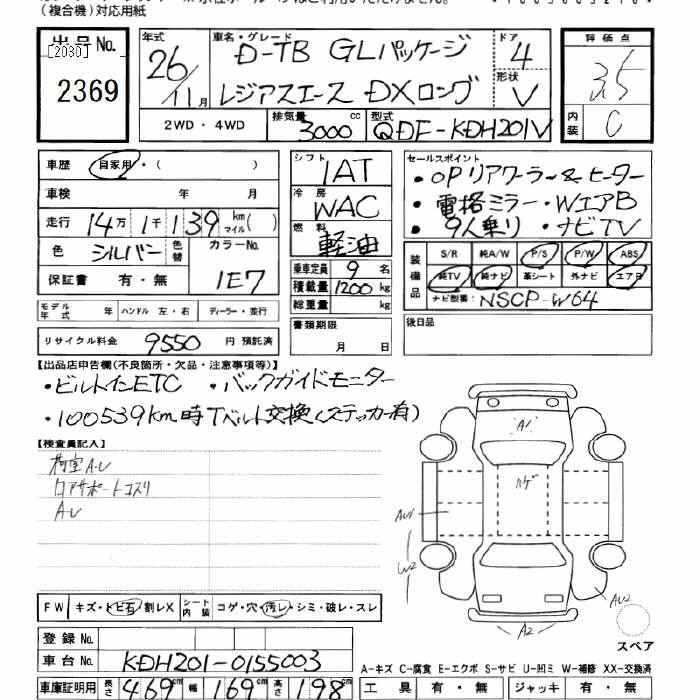 (複合機)対応用紙
出品No.
[2030]
2369
年式 26/11月
車名・グレード D-TB GLパッケージ
レジアスエース DXロング
ドア 4
形状 V
2WD・4WD
排気量 3000 cc
型式 QDF-KDH201V
評価点 3.5
内装 C
車歴 自家用・( )
車検 年 月
走行 14万1千139 km マイル( )
色 シルバー 色替 カラーNo. 1E7
保証書 有・無
モデル年式 年 ハンドル 左・右 ディーラー・並行
リサイクル料金 9550 円 預託済
シフト IAT
冷房 WAC
燃料 軽油
乗車定員 9 名
積載量 1200 kg
総重量 kg
書類期限
月 日
セールスポイント
・OPリアクーラー&ヒーター
・電格ミラー・WエアB
・9人乗り・ナビTV
装備品
S/R 純A/W P/S P/W ABS
純TV 純ナビ 革シート 外ナビ エアB
ナビ型番: NSCP-W64
後日品
【出品店申告欄(不良箇所・欠品・注意事項等)】
・ビルトインETC ・バックガイドモニター
・100539km時Tベルト交換(ステッカー有)
【検査員記入】
荷室A.U
ロアサポートコスリ
A.U
A1
ハゲ
AU1
W2
AU2
A2
スペア
FW キズ・トビ石・割レX シート内装 コゲ・穴・汚レ・シミ・破レ・スレ
登録No.
車台No. KDH201-0155003
車庫証明用 長さ 469cm 幅 169cm 高さ 198cm
A―キズ C―腐食 E―エクボ S―サビ U―凹ミ W―補修 XX―交換済
工具 有・無 ジャッキ 有・無